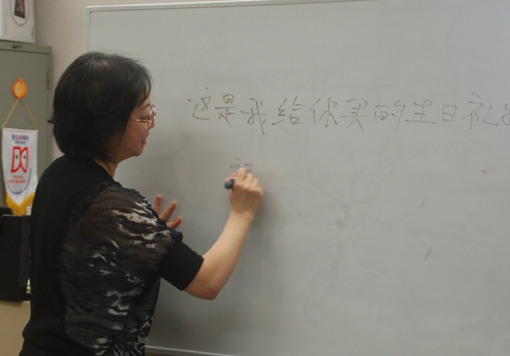 这是我给你买的生日礼